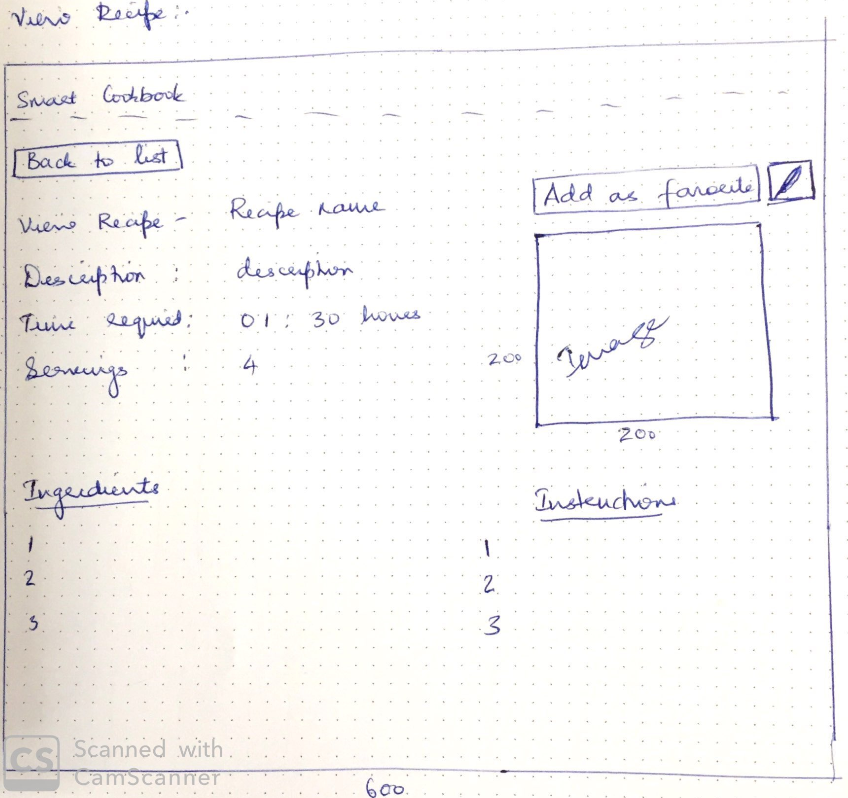 View Recipe:-
Smart Cookbook
Back to list
Add as favourite
View Recipe - Recipe name
Description : description
Time required: 01 : 30 hours
Servings : 4
Image
200
200
Ingredients
Instructions
1
1
2
2
3
3
CS Scanned with
CamScanner
600